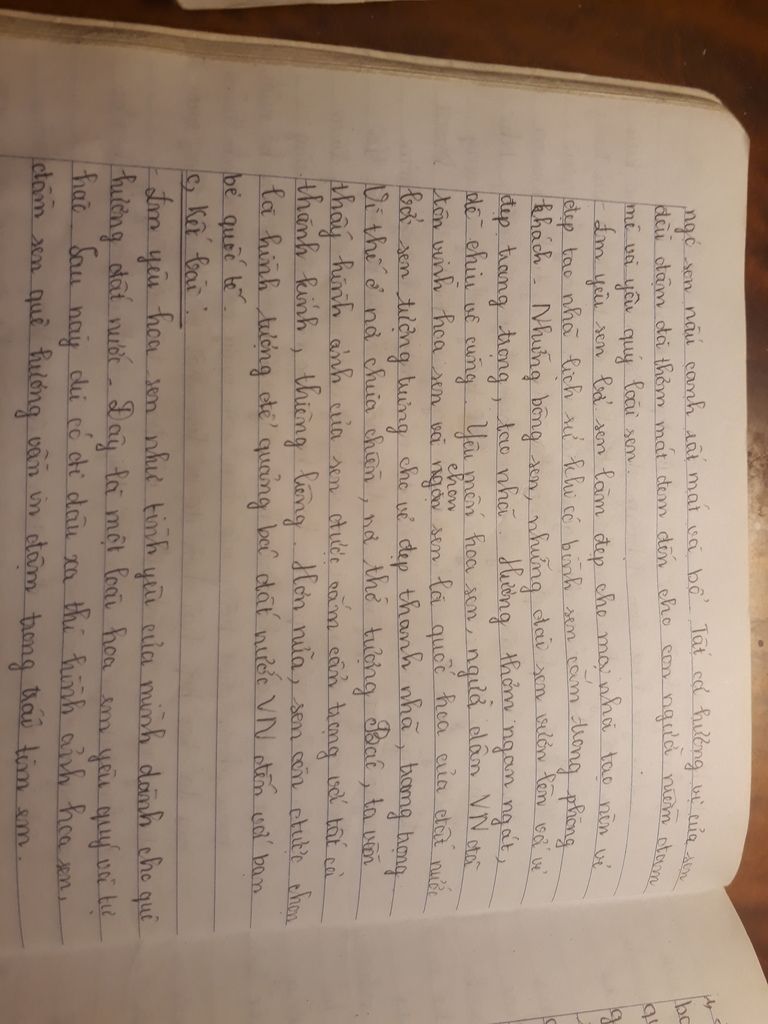 ngó sen nấu canh rất mát và bổ. Tất cả hương vị của sen
đều đậm đà thơm mát đem đến cho con người niềm đam
mê và yêu quý loài sen.
- Em yêu sen bởi sen làm đẹp cho mọi nhà tạo nên vẻ
đẹp tao nhã lịch sử khi có bình sen cắm trong phòng
khách. Những bông sen, những đài sen vươn lên với vẻ
đẹp trang trọng, tao nhã. Hương thơm ngan ngát,
dễ chịu vô cùng. Yêu mến hoa sen, người dân VN đã
tôn vinh hoa sen và chọn sen là quốc hoa của đất nước
bởi sen tượng trưng cho vẻ đẹp thanh nhã, trang trọng
Vì thế ở nà chùa chiền, nà thờ tượng Bác, ta vẫn
thấy hình ảnh của sen được cắm cẩn trọng với tất cả
thành kính, thiêng liêng. Hơn nữa, sen còn được chọn
là hình tượng để quảng bá đất nước VN đến với bạn
bè quốc tế.
c, Kết bài:
- Em yêu hoa sen như tình yêu của mình dành cho quê
hương đất nước. Đây là một loài hoa em yêu quý và tự
hào. Sau này dù có đi đâu xa thì hình ảnh hoa sen,
đầm sen quê hương vẫn in đậm trong trái tim em.